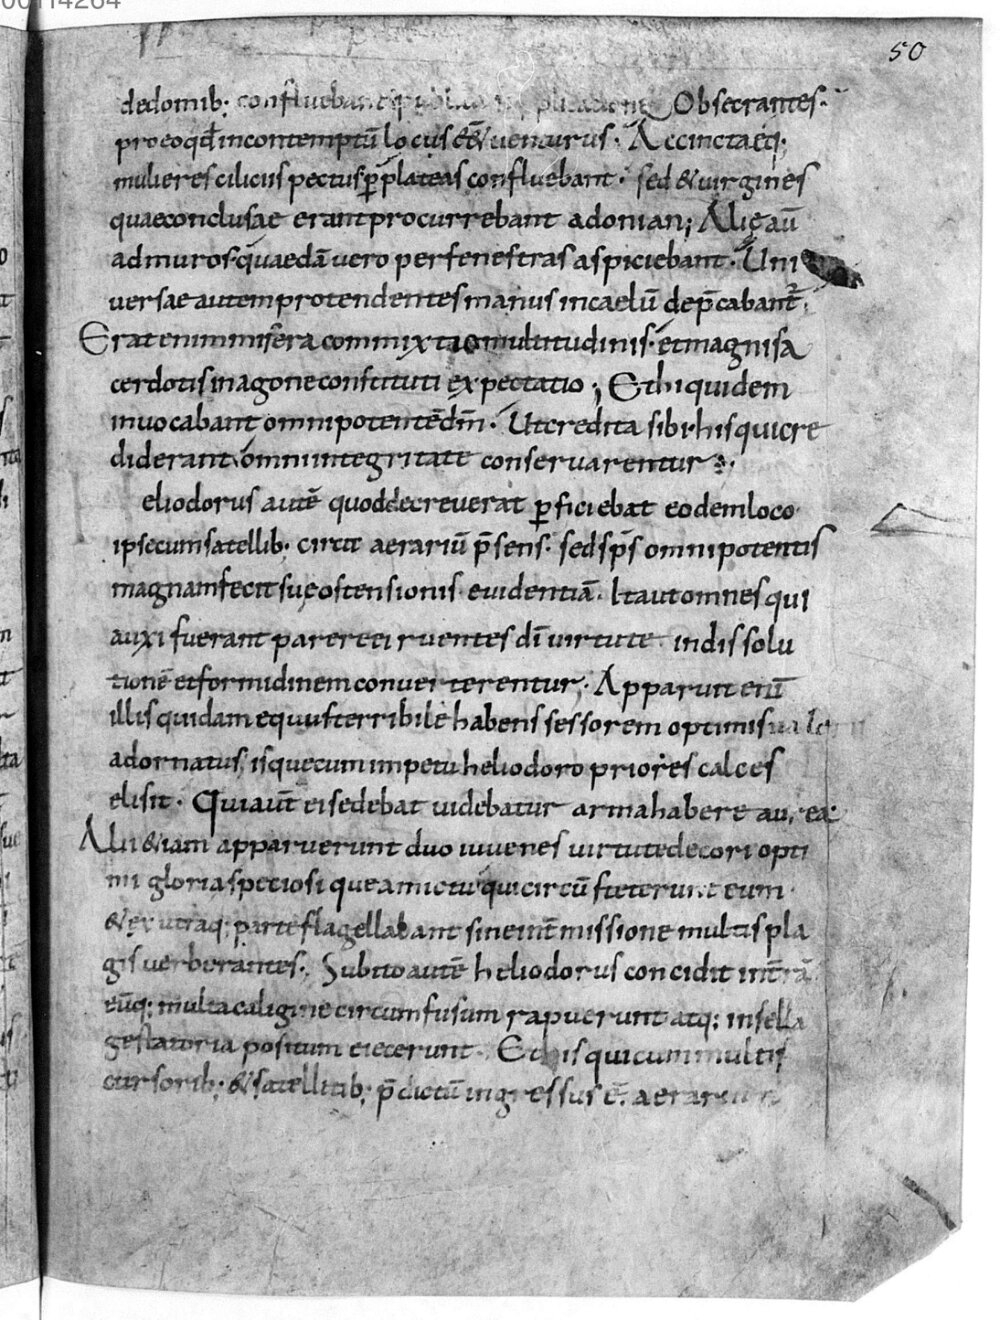 00114264
50
dedomib; confluebant publica supplicatione Obsecrantes.
pro eo qđ in contemptū locus ēet uenturus. Accinctaeq;
mulieres ciliciis pectus p plateas confluebant. sed & uirgines
quae conclusae erant procurrebant ad onian; Aliae aū
ad muros quaedā uero per fenestras aspiciebant. Uni
uersae autem protendentes manus in caelū dep̄cabant̄.
Erat enim misera commixtio multitudinis. et magni sa
cerdotis in agone constituti expectatio; Et hi quidem
inuocabant omnipotentē dm̄. Ut credita sibi his qui cre
diderant omni integritate conseruarentur.
eliodorus autē quod decreuerat pficiebat eodem loco
ipse cum satellib; circa aerariū p̄sens. sed sp̄s omnipotentis
magnam fecit suę ostensionis euidentiā. Ita ut omnes qui
auxi fuerant parere ei ruentes dī uirtute in dissolu
tionē et formidinem conuerterentur. Apparuit enī
illis quidam equus terribilē habens sessorem optimis
adornatus, isque cum impetu heliodoro priores calces
elisit. Qui aut̄ ei sedebat uidebatur arma habere aurea
Alii &iam apparuerunt duo iuuenes uirtute decori opti
mi gloria speciosique amictu qui circū steterunt eum
& ex utraq; parte flagellabant sine int̄missione multis pla
gis uerberantes. Subito autē heliodorus concidit in t̄rā
eūq; multa caligine circumfusum rapuerunt atq; in sella
gestatoria positum eiecerunt. Et his qui cum multis
cursorib; & satellitib; p̄dictū ingressus ē aerarium